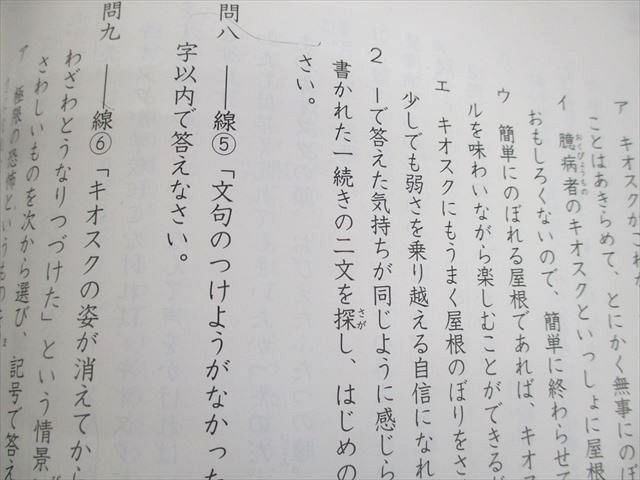 ア キオスクが
ことはあきらめて、とにかく無事にのぼ
イ 臆病者のキオスクといっしょに屋根
おもしろくないので、簡単に終わらせて
ウ 簡単にのぼれる屋根であれば、キオス
ルを味わいながら楽しむことができる
エ キオスクにもうまく屋根のぼりをさ
少しでも弱さを乗り越える自信になれ
2 ーで答えた気持ちが同じように感じら
書かれた一続きの二文を探し、はじめの
さい。
問八 ――線⑤「文句のつけようがなかった
字以内で答えなさい。
問九 ――線⑥「キオスクの姿が消えてから
わざわとうなりつづけた」という情景
さわしいものを次から選び、記号で答え
ア 極限の恐怖というもの